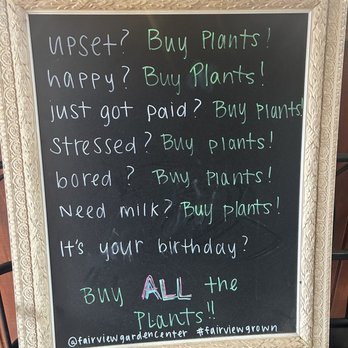 upset? Buy Plants!
happy? Buy Plants!
just got paid? Buy Plants!
Stressed? Buy plants!
bored? Buy Plants!
Need milk? Buy plants!
It's your birthday?
Buy ALL the
Plants!!
@fairviewgardencenter #fairviewgrown